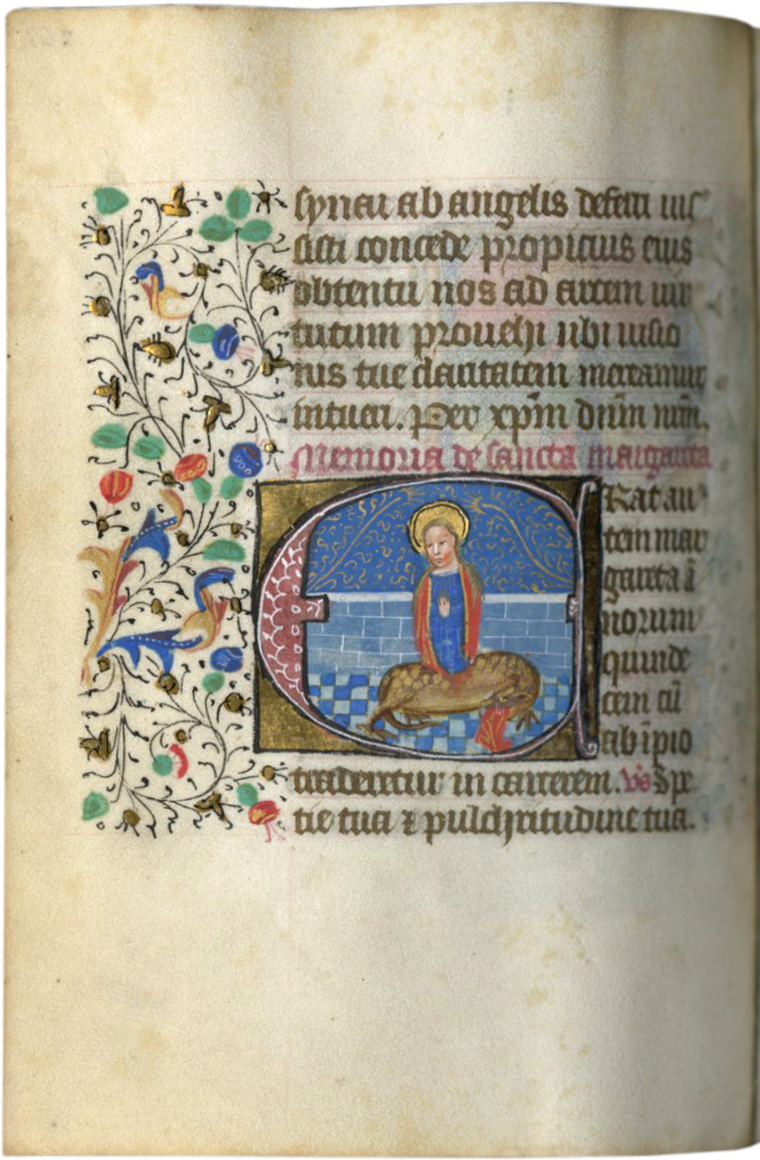 synai ab angelis deferri ius
sisti concede propicius eius
obtentu nos ad arcem uir
tutum prouehi ubi uisio
nis tue claritatem mereamur
intueri. Per xp̄m dn̄m nr̄m.
Memoria de sancta margareta
Erat au
tem mar
gareta ā
norum
quinde
cim cū
ab īpio
traderetur in carcerem. Vs̄ Spe
cie tua ⁊ pulchritudine tua.